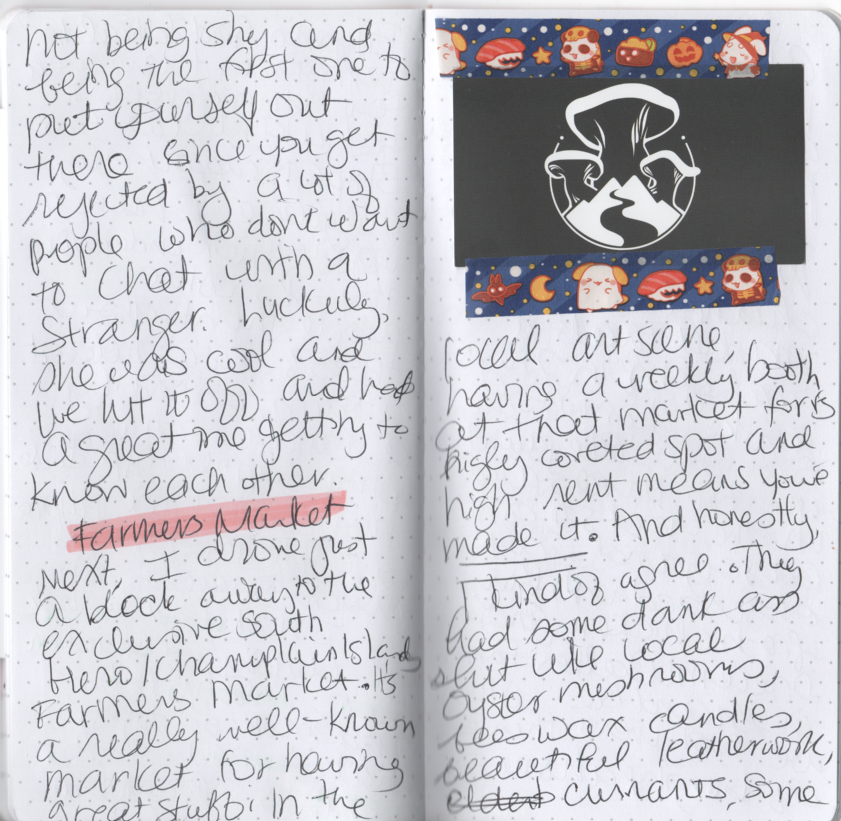 not being shy and
being the first one to
put yourself out
there since you get
rejected by a lot of
people who dont want
to chat with a
stranger. Luckily,
she was cool and
we hit it off and had
a great time getting to
know each other
Farmers Market
Next, I drove just
a block away to the
exclusive South
Hero/Champlain Islands
Farmers Market. Its
a really well-known
market for having
great stuff. In the
local art scene,
having a weekly booth
at that market for is
higly coveted spot and
high rent means you've
made it. And honestly,
I kind of agree. They
had some dank ass
shit like local
Oyster meshrooms,
beeswax candles,
beautiful leatherwork,
currants, some